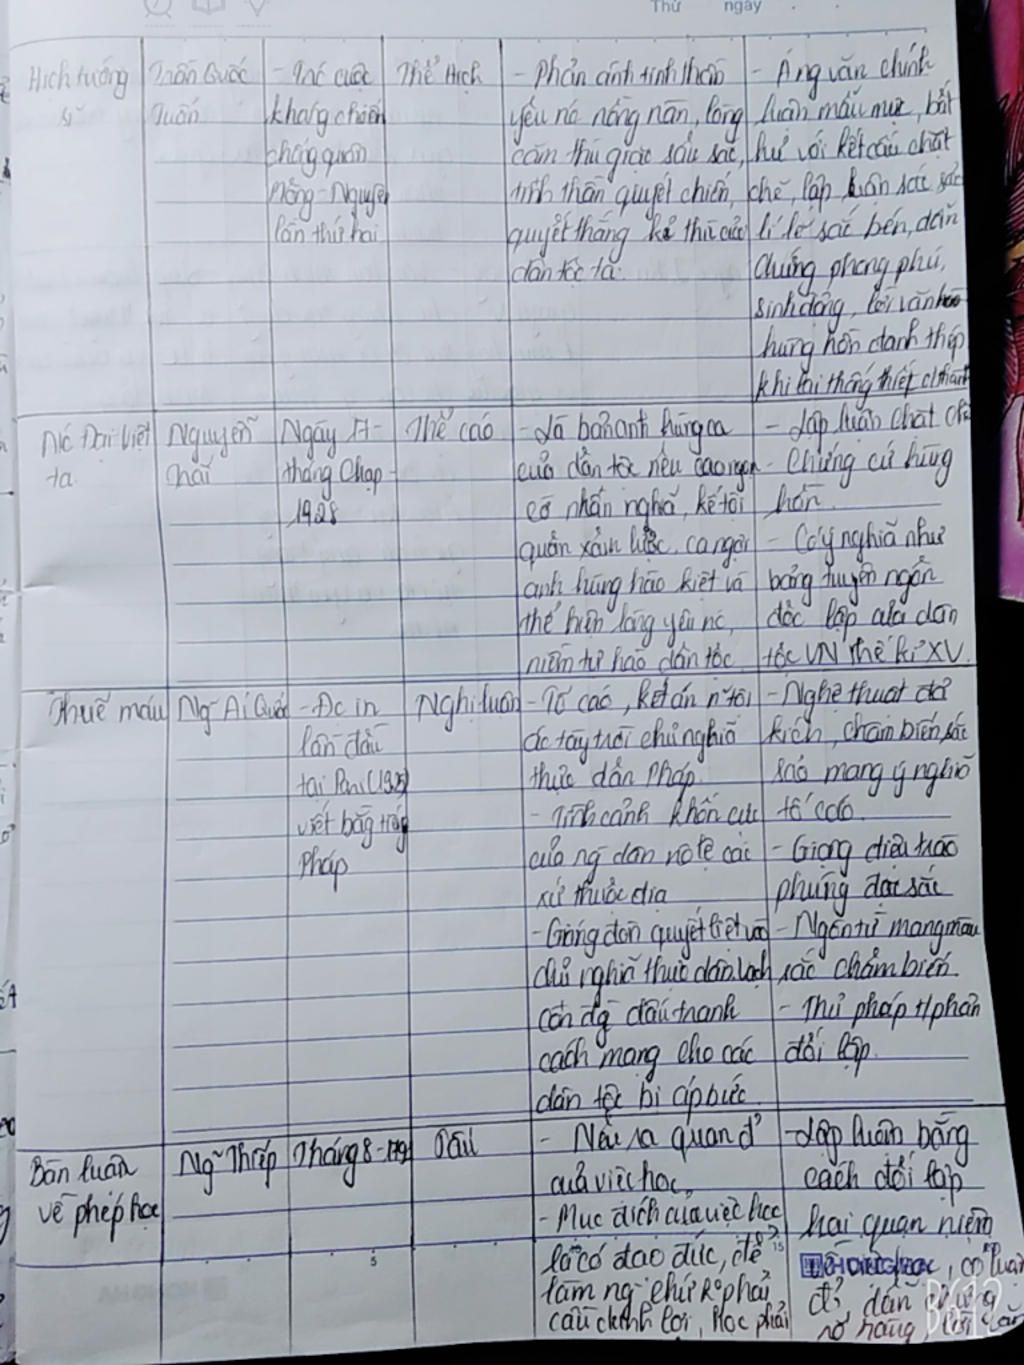 Thứ ngày
Hịch tướng sĩ
Trần Quốc Tuấn
- Trc cuộc
kháng chiến
chống quân
Mông - Nguyên
lần thứ hai
Thể Hịch
- Phản ánh tinh thần
yêu nc nồng nàn, lòng
căm thù giặc sâu sắc,
tinh thần quyết chiến,
quyết thắng kẻ thù của
dân tộc ta.
- Áng văn chính
luận mẫu mực, bất
hủ với kết cấu chặt
chẽ, lập luận sắc sảo
lí lẽ sắc bén, dẫn
chứng phong phú,
sinh động, lời văn
hùng hồn danh thép
khi lại thống thiết
Nc Đại Việt
ta
Nguyễn
Trãi
Ngày 17-
tháng Chạp -
1428
Thể cáo
- Là bản anh hùng ca
của dân tộc nêu cao ngọn
cờ nhân nghĩa, kể tội
quân xâm lược, ca ngợi
anh hùng hào kiệt và
thể hiện lòng yêu nc,
niềm tự hào dân tộc.
- Lập luận chặt chẽ
- Chứng cứ hùng
hồn.
- Có ý nghĩa như
bảng tuyên ngôn
độc lập của dân
tộc VN thế kỉ XV.
Thuế máu
Ng~ Ái Quốc
- Đc in
lần đầu
tại Pari (1925)
viết bằng tiếng
Pháp
Nghị luận
- Tố cáo, kết án n~ tội
ác tày trời chủ nghĩa
thực dân Pháp.
- Tình cảnh khốn cực
của ng dân nô lệ các
xứ thuộc địa
- Giáng đòn quyết liệt vào
chủ nghĩa thực dân, vạch
con đg đấu tranh
cách mạng cho các
dân tộc bị áp bức.
- Nghệ thuật đả
kích, châm biến, sắc
sảo mang ý nghĩa
tố cáo.
- Giọng điệu trào
phúng đặc sắc
- Ngôn từ mang màu
sắc châm biến.
- Thủ pháp t/phản
đối lập.
Bàn luận
về phép học
Ng~ Thiếp
Tháng 8 - 1791
Tấu
- Nêu ra quan đ'
của việc học,
- Mục đích của việc học
là có đạo đức, để
làm ng chứ k° phải
cầu danh lợi, Học phải
- Lập luận bằng
cách đối lập
hai quan niệm
đ', dẫn chứng
rõ ràng, lời văn
5
15
B612